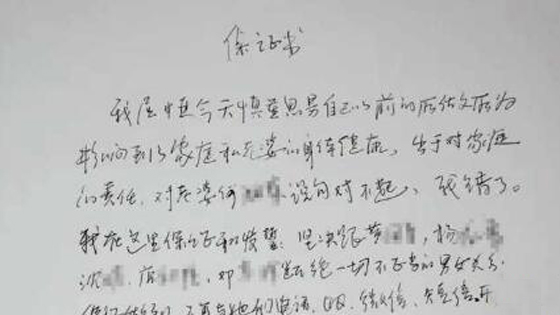 保证书
我屈中恒今天慎重思易自己以前的所作所为
影响到了家庭和老婆的身体健康，出于对家庭
的责任，对老婆何 说句对不起，我错了。
我在这里保证和发誓：坚决跟黄 ，杨
沈 ，唐 ，邓 断绝一切不正当的男女关系
不再与她们电话、QQ、微信、短信、开